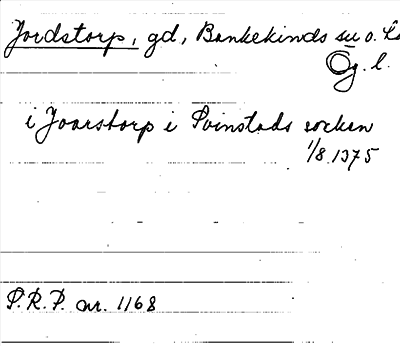 Jordstorp, gd, Bankekinds sn o.
Ög. l.
i Joarstorp i Svinstads socken
1/8 1375
P.R.P. nr. 1168